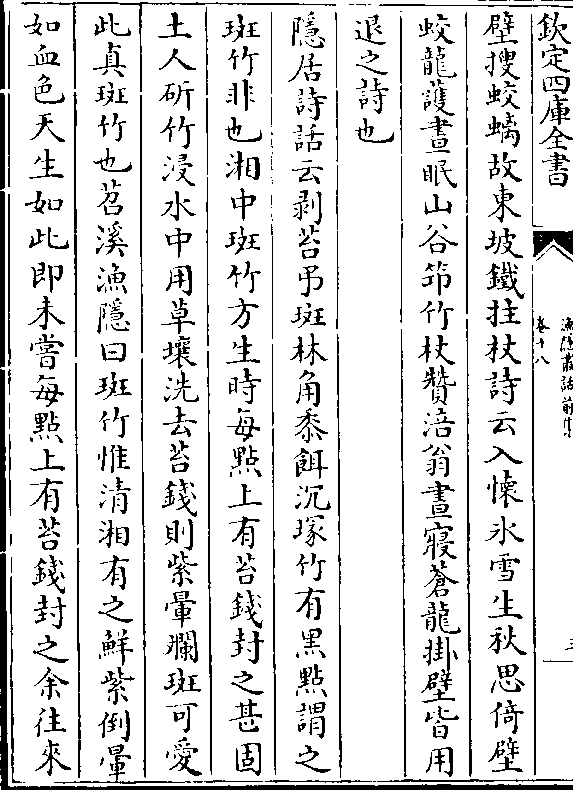 欽定四庫全書
漁隱叢話前集
卷十八
壁搜蛟螭故東坡鐵拄杖詩云入懷氷雪生秋思倚壁
蛟龍䕶晝眠山谷筇竹杖贊涪翁晝寢蒼龍掛壁皆用
退之詩也
隱居詩話云剥苔弔斑林角黍餌沉塚竹有黑點謂之
斑竹非也湘中斑竹方生時每點上有苔錢封之甚固
土人斫竹浸水中用草壤洗去苔錢則紫暈斕斑可愛
此真斑竹也苕溪漁隱曰斑竹惟清湘有之鮮紫倒暈
如血色天生如此即未嘗每點上有苔錢封之余往來